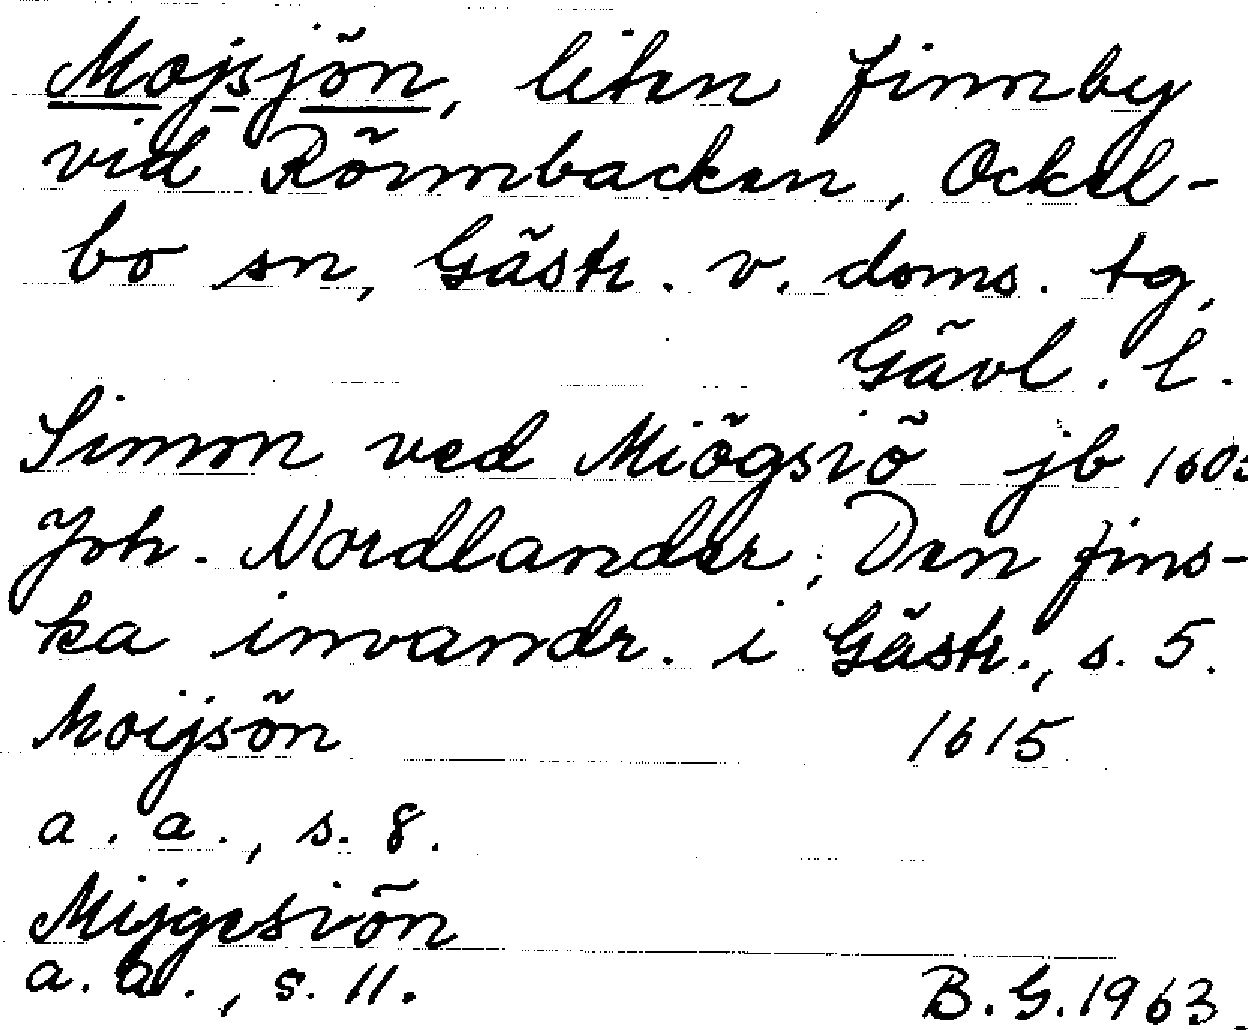 Mojsjön, liten finnby
vid Rönnbacken, Ockel-
bo sn, Gästr. v. doms. tg,
Gävl. l.
Simon ved Miögsiö jb
Joh. Nordlander, Den fins-
ka invandr. i Gästr., s. 5.
Moijsön 1615
a. a., s. 8.
Mijgesiön
a. a., s. 11. B.G. 1963.